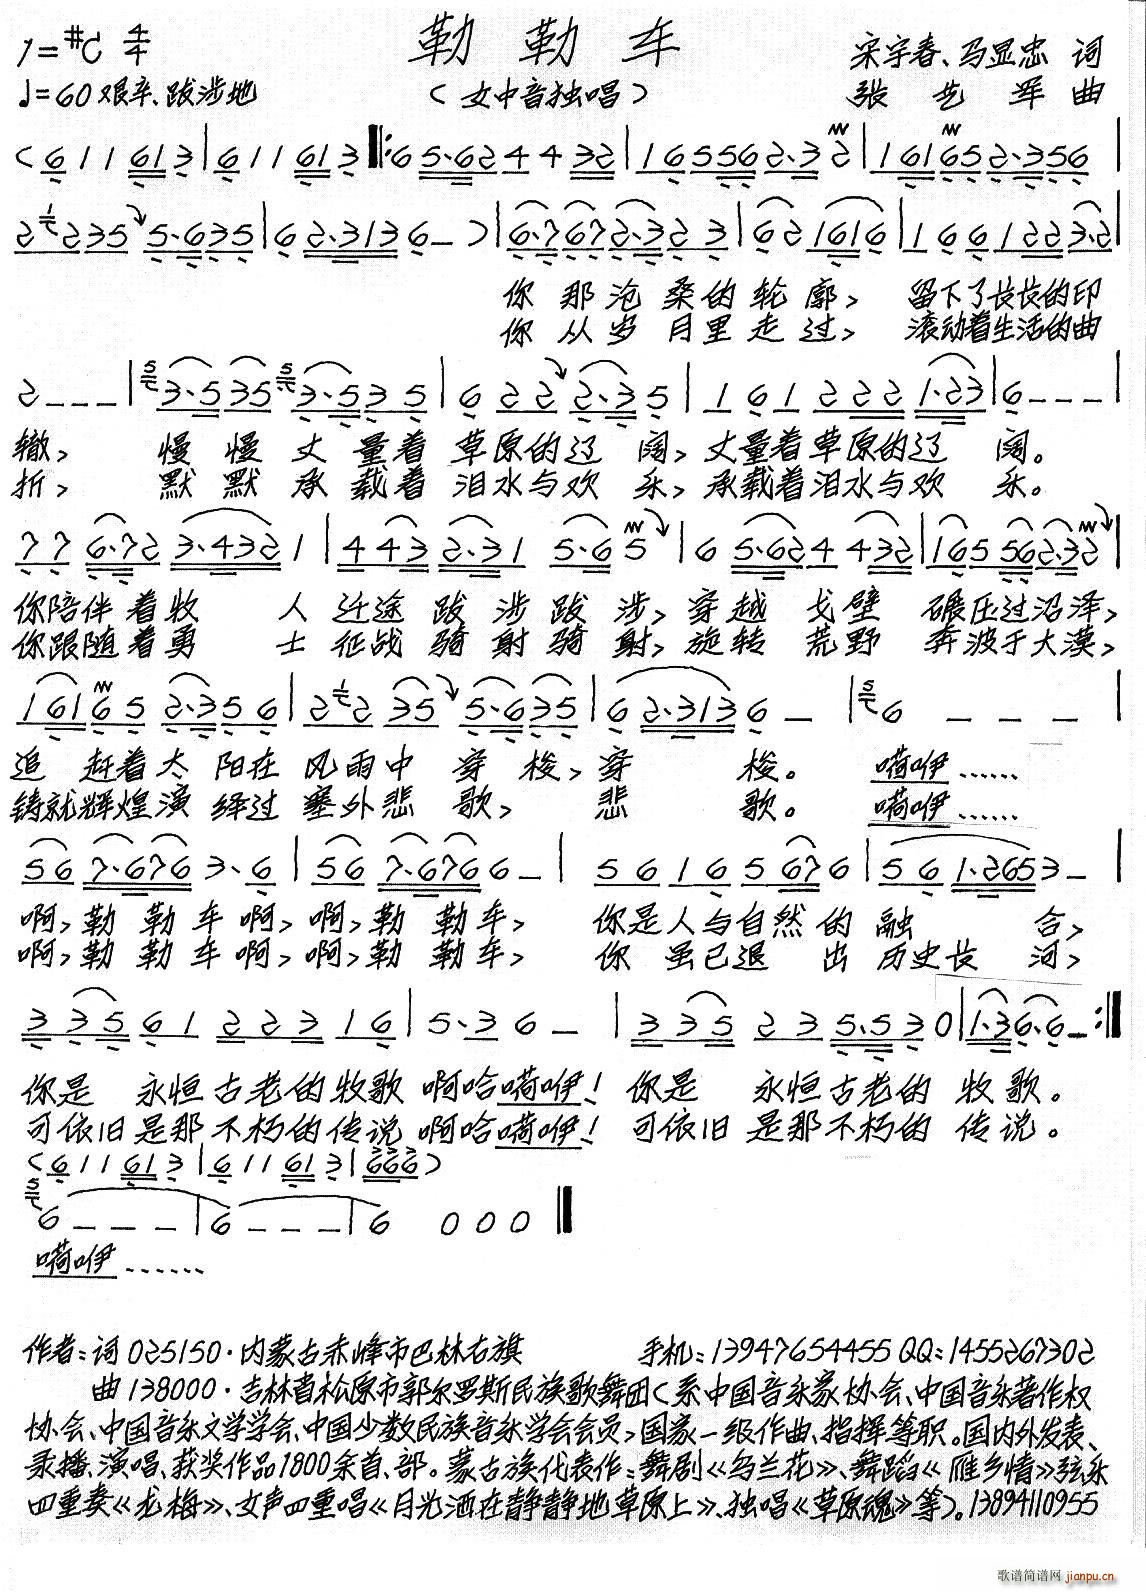 1=#C 4/4
勒勒车
宋宇春、马显忠 词
♩=60 艰辛、跋涉地
(女中音独唱)
张艺军 曲
(6 1 1 61 3 | 6 1 1 61 3 ‖: 6 5·6 2 4 4 32 | 1 6 5 56 2·3 2 | 1 61 65 2·3 56 |
2 1 2 35 5·6 35 | 6 2·3 13 6 – ) | 6·7 67 2·3 2 3 | 6 2 1 61 6 | 1 6 6 1 2 2 3·2 |
你那沧桑的轮廓, 留下了长长的印
你从岁月里走过, 滚动着生活的曲
2 – – – | 5 3·5 35 5 3·5 3 5 | 6 2 2 2 2·3 5 | 1 6 1 2 2 2 1·23 | 6 – – – |
辙, 慢慢丈量着草原的辽阔, 丈量着草原的辽阔。
折, 默默承载着泪水与欢乐, 承载着泪水与欢乐。
7 7 6·7 2 3·432 1 | 4 4 3 2·3 1 5·6 5 | 6 5·6 2 4 4 32 | 1 65 56 2·3 2 |
你陪伴着牧人迁途跋涉跋涉, 穿越戈壁碾压过沼泽,
你跟随着勇士征战骑射骑射, 旋转荒野奔波于大漠,
1 61 6 5 2·3 5 6 | 2 1 2 35 5·6 35 | 6 2·313 6 – | 5 6 – – – |
追赶着太阳在风雨中穿梭, 穿梭。 嗬咿……
铸就辉煌演绎过塞外悲歌, 悲歌。 嗬咿……
5 6 7·676 3·6 | 5 6 7·676 6 – | 5 6 1 6 5 67 6 | 5 6 1·265 3 – |
啊, 勒勒车啊, 啊, 勒勒车, 你是人与自然的融合,
啊, 勒勒车啊, 啊, 勒勒车, 你虽已退出历史长河,
3 3 5 6 1 2 2 3 1 6 | 5·3 6 – | 3 3 5 2 3 5·5 3 0 | 1·3 6·6 – :‖
你是永恒古老的牧歌啊哈嗬咿! 你是永恒古老的牧歌。
可依旧是那不朽的传说啊哈嗬咿! 可依旧是那不朽的传说。
(6 1 1 61 3 | 6 1 1 61 3 | 6 6 6)
5 6 – – – | 6 – – – | 6 0 0 0 ‖
嗬咿……
作者:词 025150·内蒙古赤峰市巴林右旗 手机:13947654455 QQ:1455267302
曲 138000·吉林省松原市郭尔罗斯民族歌舞团(系中国音乐家协会、中国音乐著作权
协会、中国音乐文学学会、中国少数民族音乐学会会员,国家一级作曲、指挥等职。国内外发表、
录播、演唱、获奖作品1800余首、部。蒙古族代表作:舞剧《乌兰花》、舞蹈《雁乡情》弦乐
四重奏《龙梅》、女声四重唱《月光洒在静静地草原上》、独唱《草原魂》等)。13894110955
歌谱简谱网 jianpu.cn